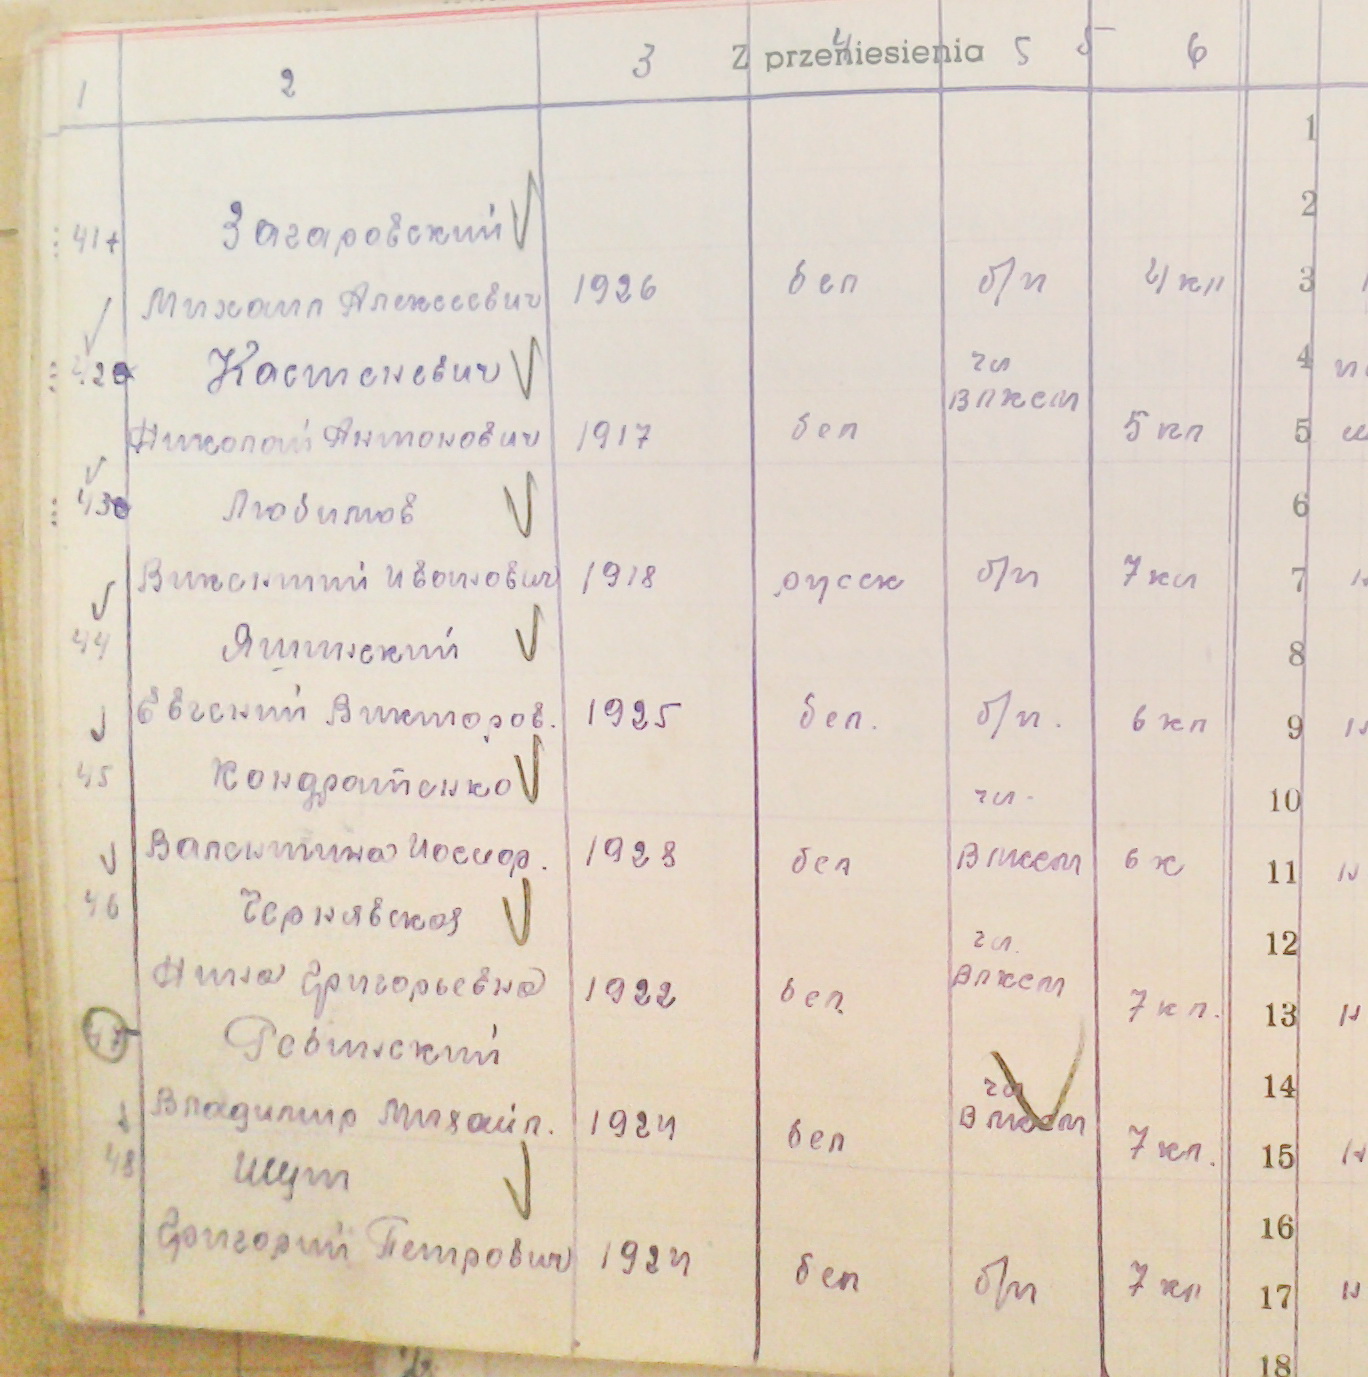 1 2 3 Z przeniesienia 4 5 5 6
1
2
41+ Загаровский
Михаил Алексеевич 1926 бел б/п 4 кл 3
42 Кастеневич чл 4
ВЛКСМ
Николай Антонович 1917 бел 5 кл 5
43 Любимов 6
Викентий Иванович 1918 русск б/п 7 кл 7
44 Яшинский 8
Евгений Викторов. 1925 бел. б/п. 6 кл 9
45 Кондратенко чл. 10
Валентина Иосифов. 1928 бел ВЛКСМ 6 к 11
46 Чернявская чл. 12
Нина Григорьевна 1922 бел. ВЛКСМ 7 кл. 13
47 Ревинский чл 14
Владимир Михайл. 1924 бел ВЛКСМ 7 кл. 15
48 Шут 16
Григорий Петрович 1924 бел б/п 7 кл 17
18